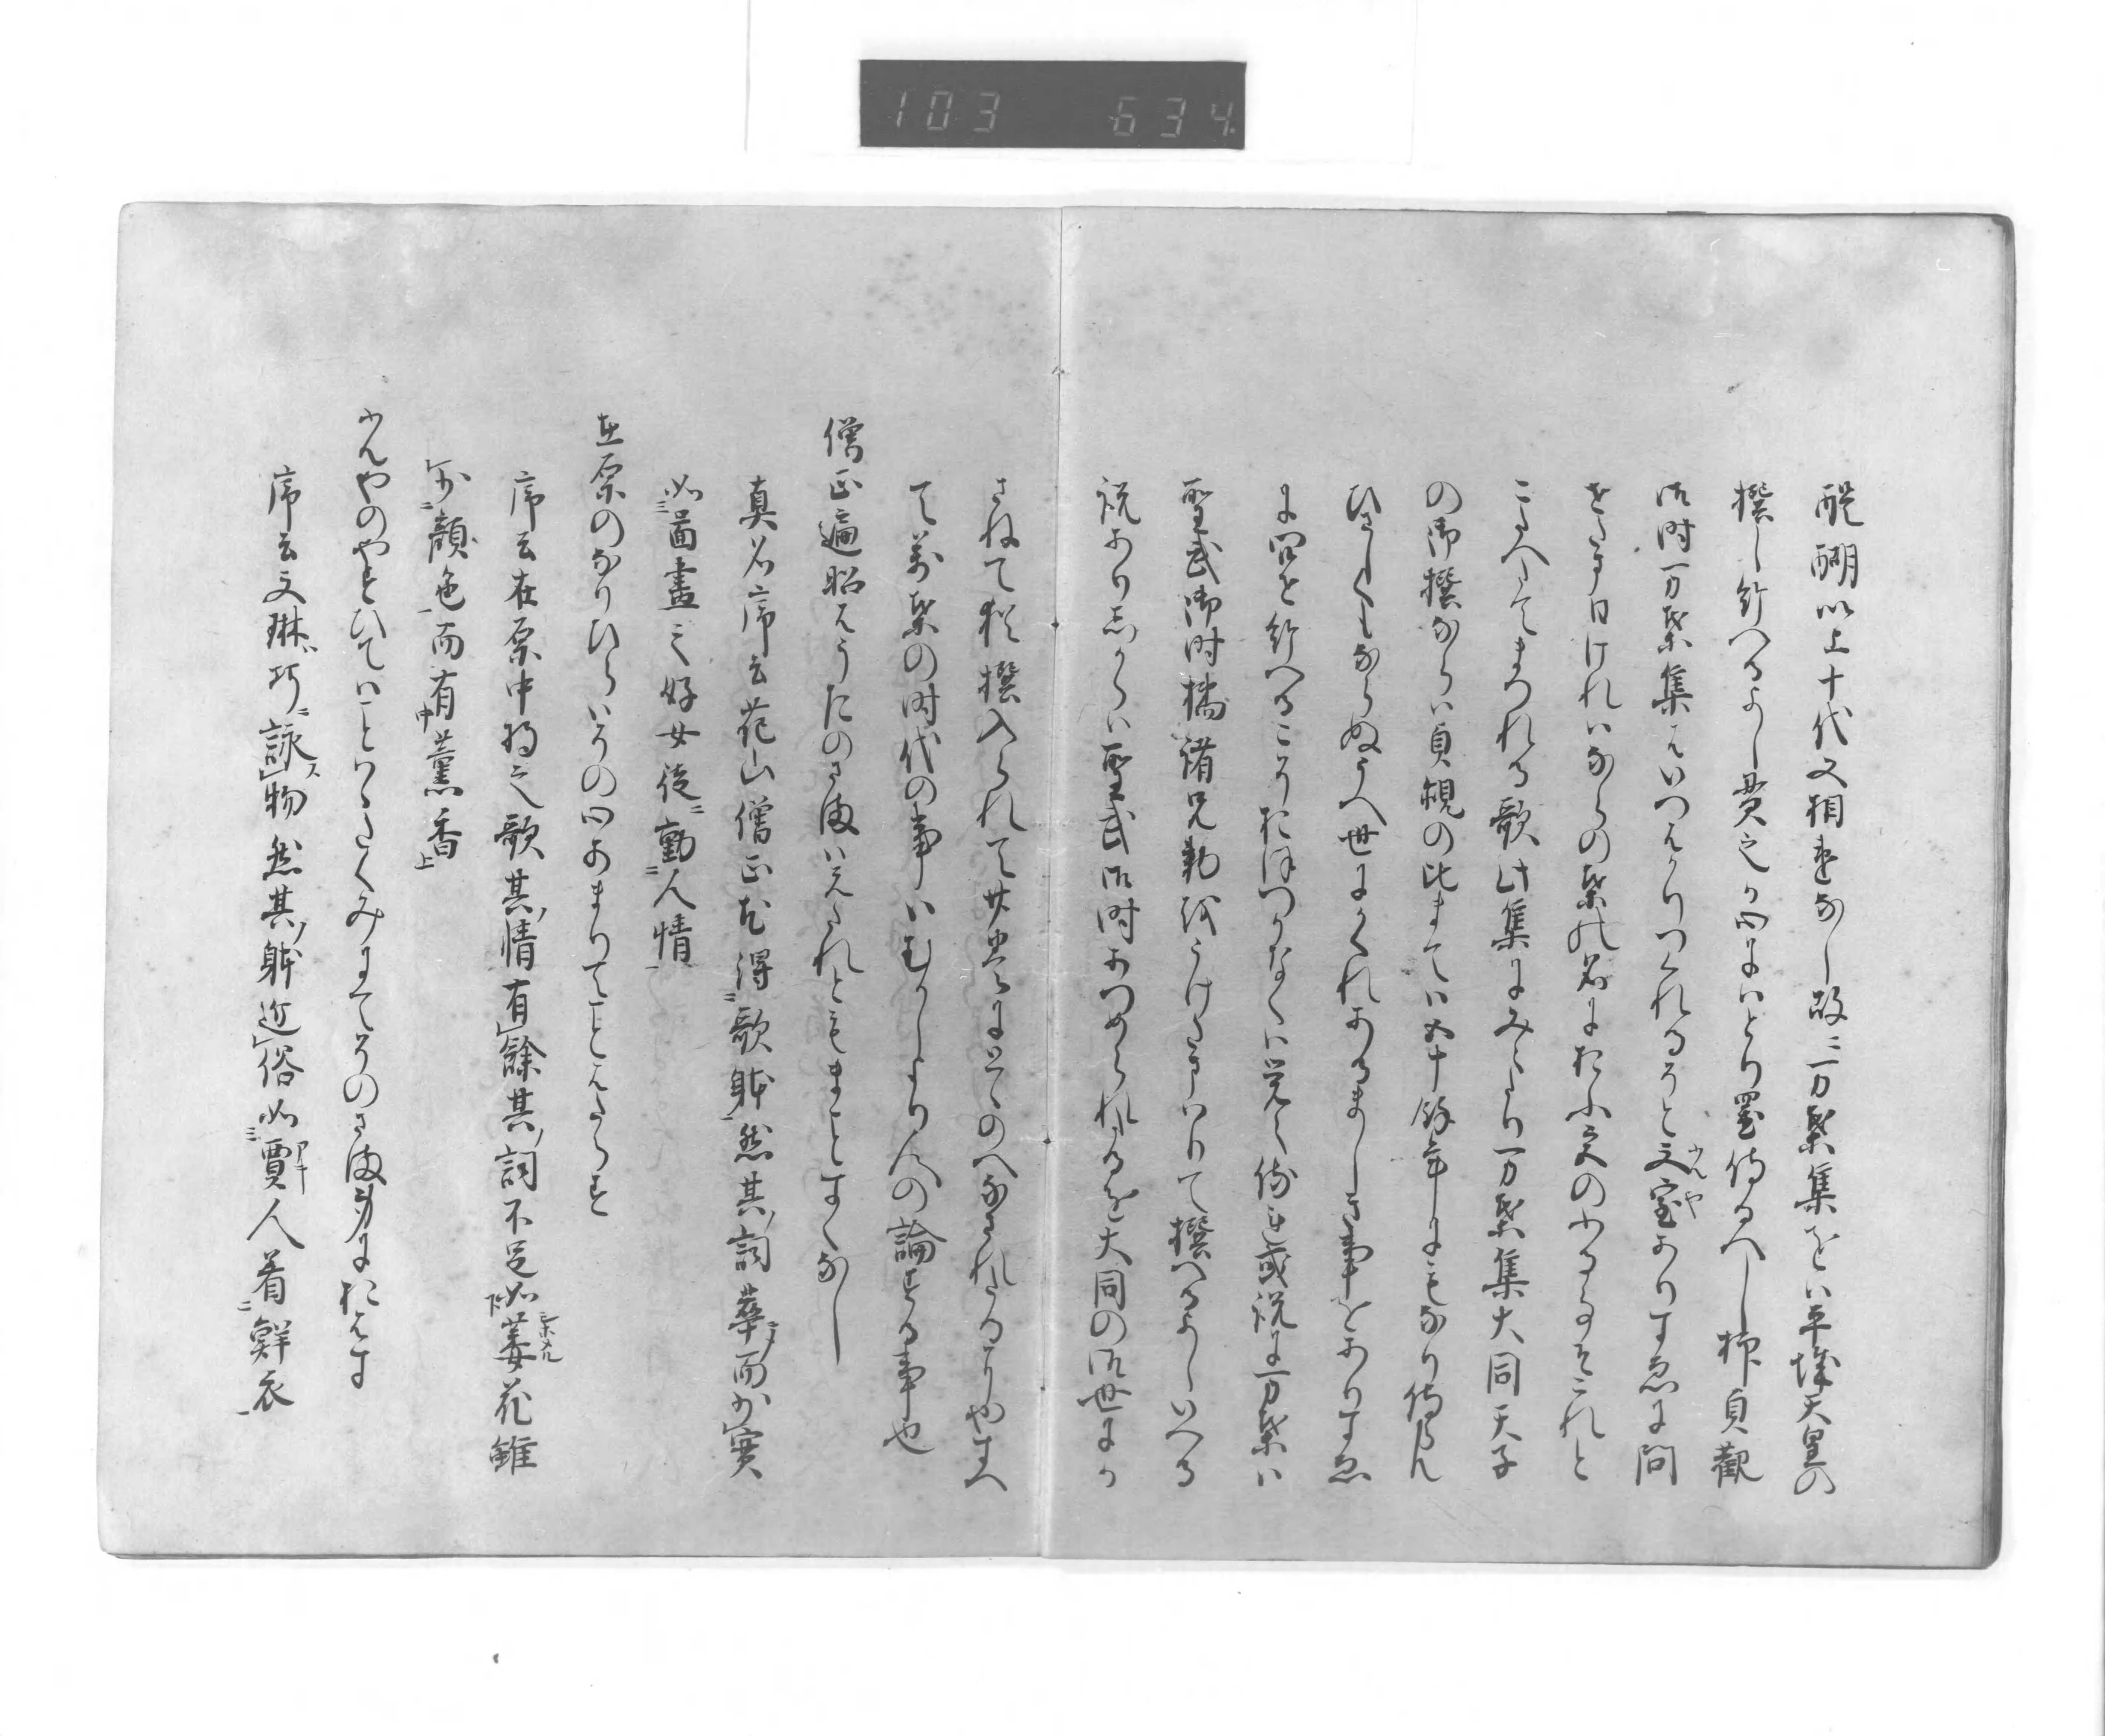 103 634
醍醐以上十代又相違なし故ニ万葉集をハ平城天皇の
撰し給へるよし貫之か心にハとり置侍るへし抑貞観
御時万葉集はいつはかりつくれるそと文室ありすゑに問
せたまひけれハならの葉の名におふ宮のふることそこれと
こたへたてまつれる歌此集にみえたり万葉集大同天子
の御撰ならハ貞観の比まてハ五十餘年にもなり侍らん
ひさしくもならぬうへ世にかくれあるましき事をありすゑ
に問せ給へることおほつかなくハ覚え侍と或説に万葉ハ
聖武御時橘諸兄勅をうけたまハりて撰へるよしいへる
説ありしからハ聖武御時あつめられけるを大同の御世にか
さねて猶撰入られて廿巻にとゝのへなされたるにやすへ
て万葉の時代の事ハむかしより人の論する事也
僧正遍昭はうたのさまハえたれともまことすくなし
真名序云花山僧正尤得歌躰然其詞華而少實
如圖畫之好女徒動人情
在原のなりひらハその心あまりてことはたらす
序云在原中将之歌其情有餘其詞不足如萎花雖
少顔色而有薫香
ふんやのやすひてハことはたくみにてそのさま身におはす
序云文琳巧詠物然其躰近俗如賈人着鮮衣